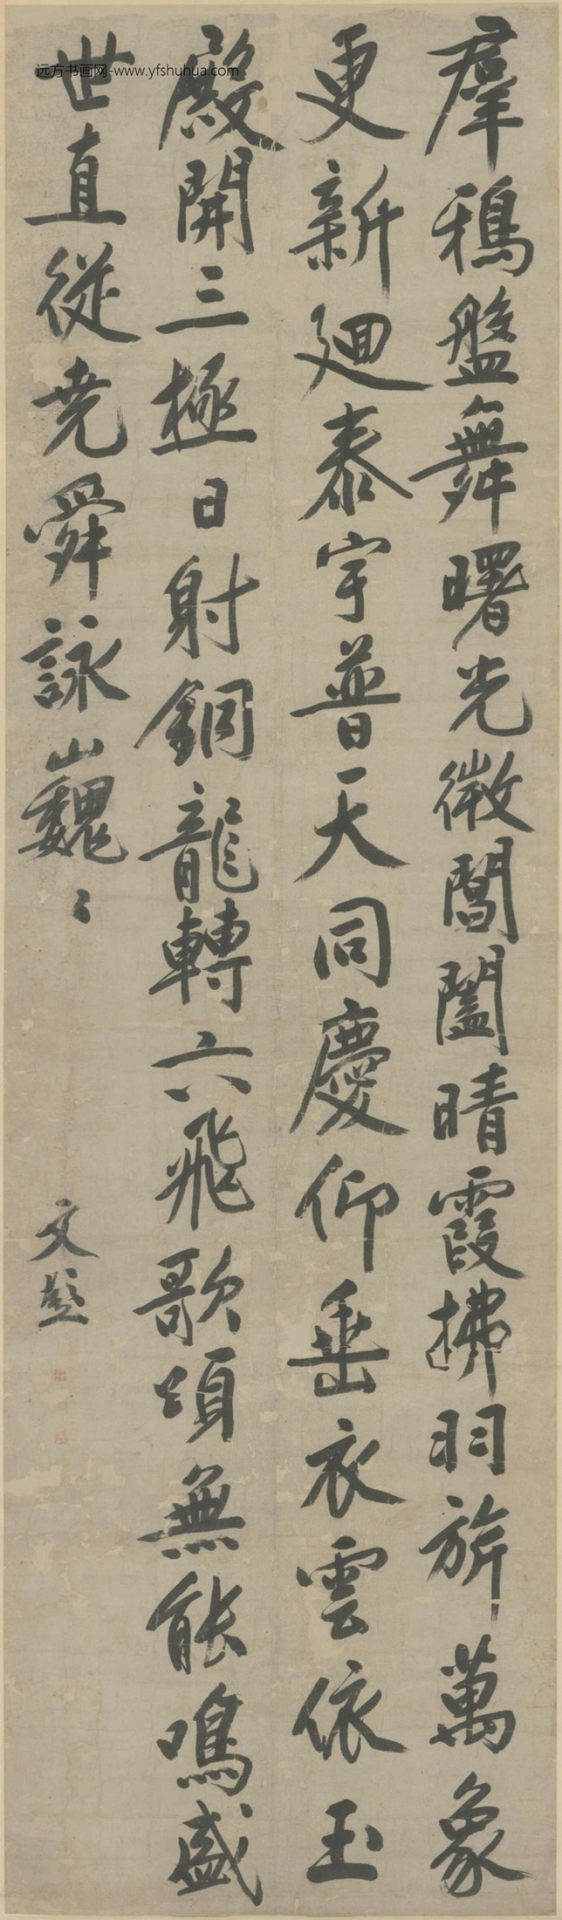 远方书画网-www.yfshuhua.com
羣鴉盤舞曙光微閶闔晴霞拂羽旂萬象
更新廻泰宇普天同慶仰垂衣雲依玉
殿開三極日射銅龍轉六飛歌頌無能鳴盛
世直從堯舜詠巍〻
文